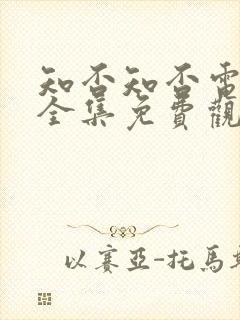 知否知否電
全集免費觀
以賽亞-托馬斯